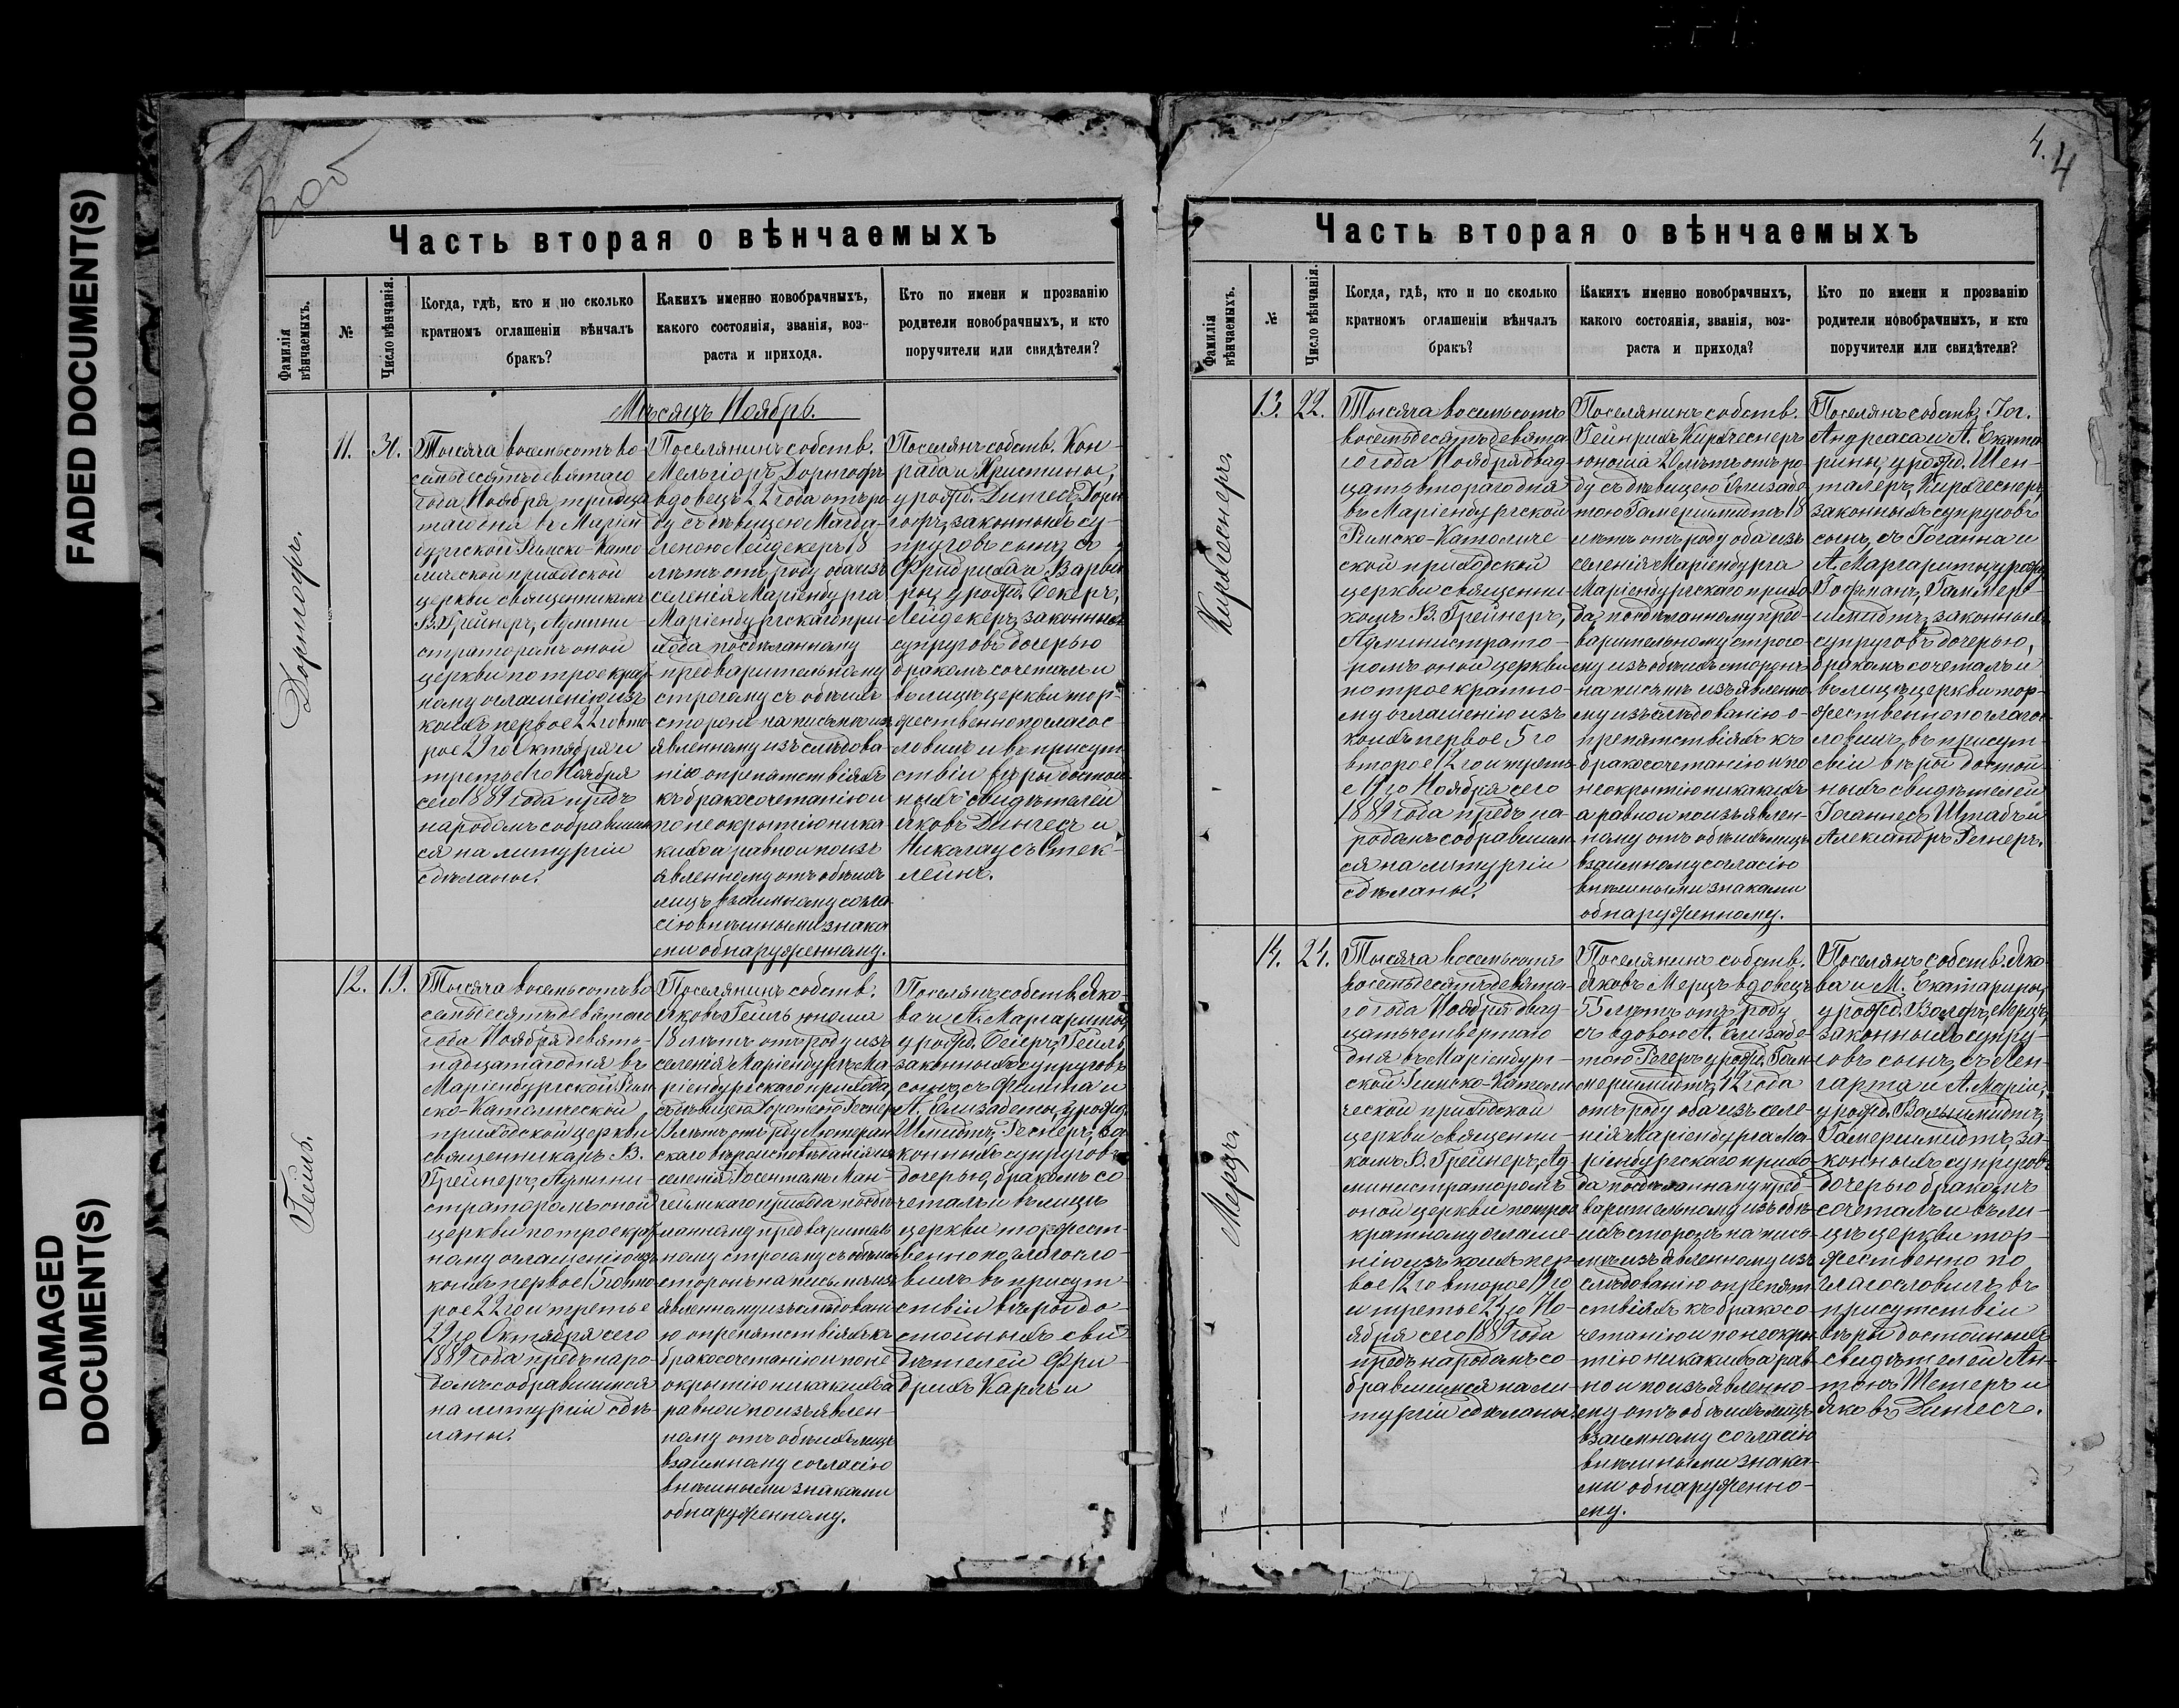 FADED DOCUMENT(S)
DAMAGED
DOCUMENT(S)
Часть вторая о вѣнчаемыхъ
Фамилія
вѣнчаемыхъ.
№
Число вѣнчанія.
Когда, гдѣ, кто и по сколько
кратномъ оглашеніи вѣнчалъ
бракъ?
Какихъ именно новобрачныхъ,
какого состоянія, званія, воз-
раста и прихода.
Кто по имени и прозванію
родители новобрачныхъ, и кто
поручители или свидѣтели?
Мѣсяцъ Ноябрь.
Дорнгофъ.
11.
Тысяча восемьсотъ во-
семьдесятъ девятаго
года Ноября
таго дня въ Маріен-
бургской Римско-Като-
лической приходской
церкви священникомъ
В. Грейнеръ, Админи-
страторомъ оной
церкви по троекрат-
ному оглашенію изъ
коихъ первое 22 го вто-
рое 29 го Октября и
третье Ноября
сего 1889 года предъ
народомъ собравшим-
ся на литургіи
сдѣланы.
Поселянинъ собств.
Мельхіоръ Дорнгофъ
вдовецъ 22 года отъ ро-
ду съ дѣвицею Магда-
леною Лейдекеръ 18
лѣтъ отъ роду оба изъ
селенія Маріенбурга
Маріенбургскаго при-
хода по сдѣланному
предварительному
строгому съ обѣихъ
сторонъ на письмѣ изъ-
явленному изъслѣдова-
нію о препятствіяхъ
къ бракосочетанію и
по неокрытію ника-
кихъ а равно и по изъ-
явленному отъ обѣихъ
лицъ взаимному согла-
сію внѣшними знака-
ми обнаруженному.
Поселянъ собств. Кон-
рада и Христины,
урожд. Дингесъ, Дорн-
гофъ, законныхъ су-
пруговъ сынъ, съ
Фридриха и Варва-
ры, урожд. Бекеръ,
Лейдекеръ, законныхъ
супруговъ дочерью
бракомъ сочеталъ и
въ лицѣ церкви тор-
жественно поблагос-
ловилъ и въ присут-
ствіи вѣры достой-
ныхъ свидѣтелей
Яковъ Дингесъ и
Николаусъ Стек-
лейнъ.
Гейль.
12. 19.
Тысяча восемьсотъ во-
семьдесятъ девятаго
года Ноября девять-
надцатаго дня въ
Маріенбургской Рим-
ско-Католической
приходской церкви
священникомъ В.
Грейнеръ, Админи-
страторомъ оной
церкви по троекрат-
ному оглашенію изъ
коихъ первое 15 го вто-
рое 22 го и третье
29 го Октября сего
1889 года предъ наро-
домъ собравшимся
на литургіи сдѣ-
ланы.
Поселянинъ собств.
Яковъ Гейль юноша
18 лѣтъ отъ роду изъ
селенія Маріенбургъ Ма-
ріенбургскаго прихода,
съ дѣвицею Доротею Геснеръ
лѣтъ отъ роду Лютеран-
скаго вѣроисповѣданія изъ
селенія Розенталь Ман-
геймскаго прихода по сдѣ-
ланному предваритель-
ному строгому съ обѣихъ
сторонъ на письмѣ изъ-
явленному изъслѣдовані-
ю о препятствіяхъ къ
бракосочетанію и по не-
окрытію никакихъ а
равно и по изъявлен-
ному отъ обѣихъ лицъ
взаимному согласію
внѣшними знаками
обнаруженному.
Поселянъ собств. Яко-
ва и А. Маргариты,
урожд. Бейеръ, Гейль
законныхъ супруговъ
сынъ, съ Филипа и
А. Елизабеты, урожд.
Шмидтъ, Геснеръ, за-
конныхъ супруговъ
дочерью, бракомъ со-
четалъ и въ лицѣ
церкви торжест-
венно поблагосло-
вилъ въ присут-
ствіи вѣры до-
стойныхъ сви-
дѣтелей Фри-
дрихъ Карль и
4. 4
Часть вторая о вѣнчаемыхъ
Фамилія
вѣнчаемыхъ.
№
Число вѣнчанія.
Когда, гдѣ, кто и по сколько
кратномъ оглашеніи вѣнчалъ
бракъ?
Какихъ именно новобрачныхъ,
какого состоянія, званія, воз-
раста и прихода?
Кто по имени и прозванію
родители новобрачныхъ, и кто
поручители или свидѣтели?
Кирхгеснеръ.
13. 22.
Тысяча восемьсотъ
восемьдесятъ девята-
го года Ноября двад-
цать втораго дня
въ Маріенбургской
Римско-Католиче-
ской приходской
церкви священни-
комъ В. Грейнеръ,
Администрато-
ромъ оной церкви
по троекратно-
му оглашенію изъ
коихъ первое 5 го
второе 12 го и треть-
е 19 го Ноября сего
1889 года предъ на-
родомъ собравшим-
ся на литургіи
сдѣланы.
Поселянинъ собств.
Гейнрихъ Кирхгеснеръ
юноша 20 лѣтъ отъ ро-
ду съ дѣвицею Елизабе-
тою Гамершмидтъ 18
лѣтъ отъ роду оба изъ
селенія Маріенбурга
Маріенбургскаго прихо-
да, по сдѣланному пред-
варительному строго-
му изъ обѣихъ сторонъ
на письмѣ изъявленно-
му изъслѣдованію о-
препятствіяхъ къ
бракосочетанію и по
неокрытію никакихъ
а равно и по изъявлен-
ному отъ обѣихъ лицъ
взаимному согласію
внѣшними знаками
обнаруженному.
Поселянъ собств. Іог.
Андреаса и А. Екате-
рины, урожд. Шен-
талеръ, Кирхгеснеръ,
законныхъ супруговъ
сынъ, съ Іоганна и
А. Маргариты, урожд.
Гофманъ, Гаммер-
шмидтъ, законныхъ
супруговъ дочерью,
бракомъ сочеталъ и
въ лицѣ церкви тор-
жественно поблагос-
ловилъ, въ присут-
свіи вѣры достой-
ныхъ свидѣтелей
Іоганнесъ Штабъ и
Александръ Регнеръ.
Мерцъ.
14. 24.
Тысяча восемьсотъ
восемьдесятъ девята-
го года Ноября двад-
цать четвертаго
дня въ Маріенбург-
ской Римско-Католи-
ческой приходской
церкви священни-
комъ В. Грейнеръ, Ад-
министраторомъ
оной церкви по трое-
кратному оглаше-
нію изъ коихъ пер-
вое 12 го второе 19 го
и третье го Но-
ября сего 1889 года
предъ народомъ со-
бравшимся на ли-
тургіи сдѣланы.
Поселянинъ собств.
Яковъ Мерцъ вдовецъ
55 лѣтъ отъ роду
съ вдовою А. Елизабе-
тою Регеръ урожд. Гам-
мершмидтъ, 42 года
отъ роду оба изъ селе-
нія Маріенбурга Ма-
ріенбургскаго прихо-
да по сдѣланному пред-
варительному изъ обѣ-
ихъ сторонъ на пись-
мѣ изъявленному изъ-
слѣдованію о препят-
ствіяхъ къ бракосо-
четанію и по неокры-
тію никакихъ а рав-
но и по изъявленно-
му отъ обѣихъ лицъ
взаимному согласію
внѣшними знака-
ми обнаруженно-
му.
Поселянъ собств. Яко-
ва и М. Екатарины,
урожд. Волфъ, Мерцъ,
законныхъ супру-
говъ сынъ, съ Лен-
гарта и А. Маріи,
урожд.
Гамершмидтъ, за-
конныхъ супруговъ
дочерью бракомъ
сочеталъ и въ ли-
цѣ церкви тор-
жественно по
благословилъ, въ
присутствіи
вѣры достойныхъ
свидѣтелей Ан-
тонъ Шетеръ и
Яковъ Дингесъ.